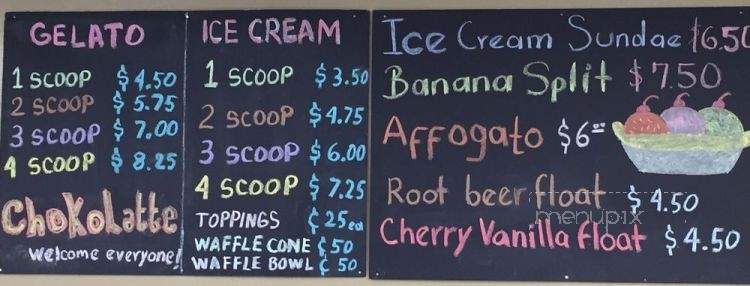 GELATO
1 SCOOP $4.50
2 SCOOP $5.75
3 SCOOP $7.00
4 SCOOP $8.25
ChoKoLatte
Welcome everyone!
ICE CREAM
1 SCOOP $3.50
2 SCOOP $4.75
3 SCOOP $6.00
4 SCOOP $7.25
TOPPINGS ¢25ea
WAFFLE CONE ¢50
WAFFLE BOWL ¢50
Ice Cream Sundae $6.50
Banana Split $7.50
Affogato $6.00
Root beer float $4.50
menupix
Cherry Vanilla float $4.50